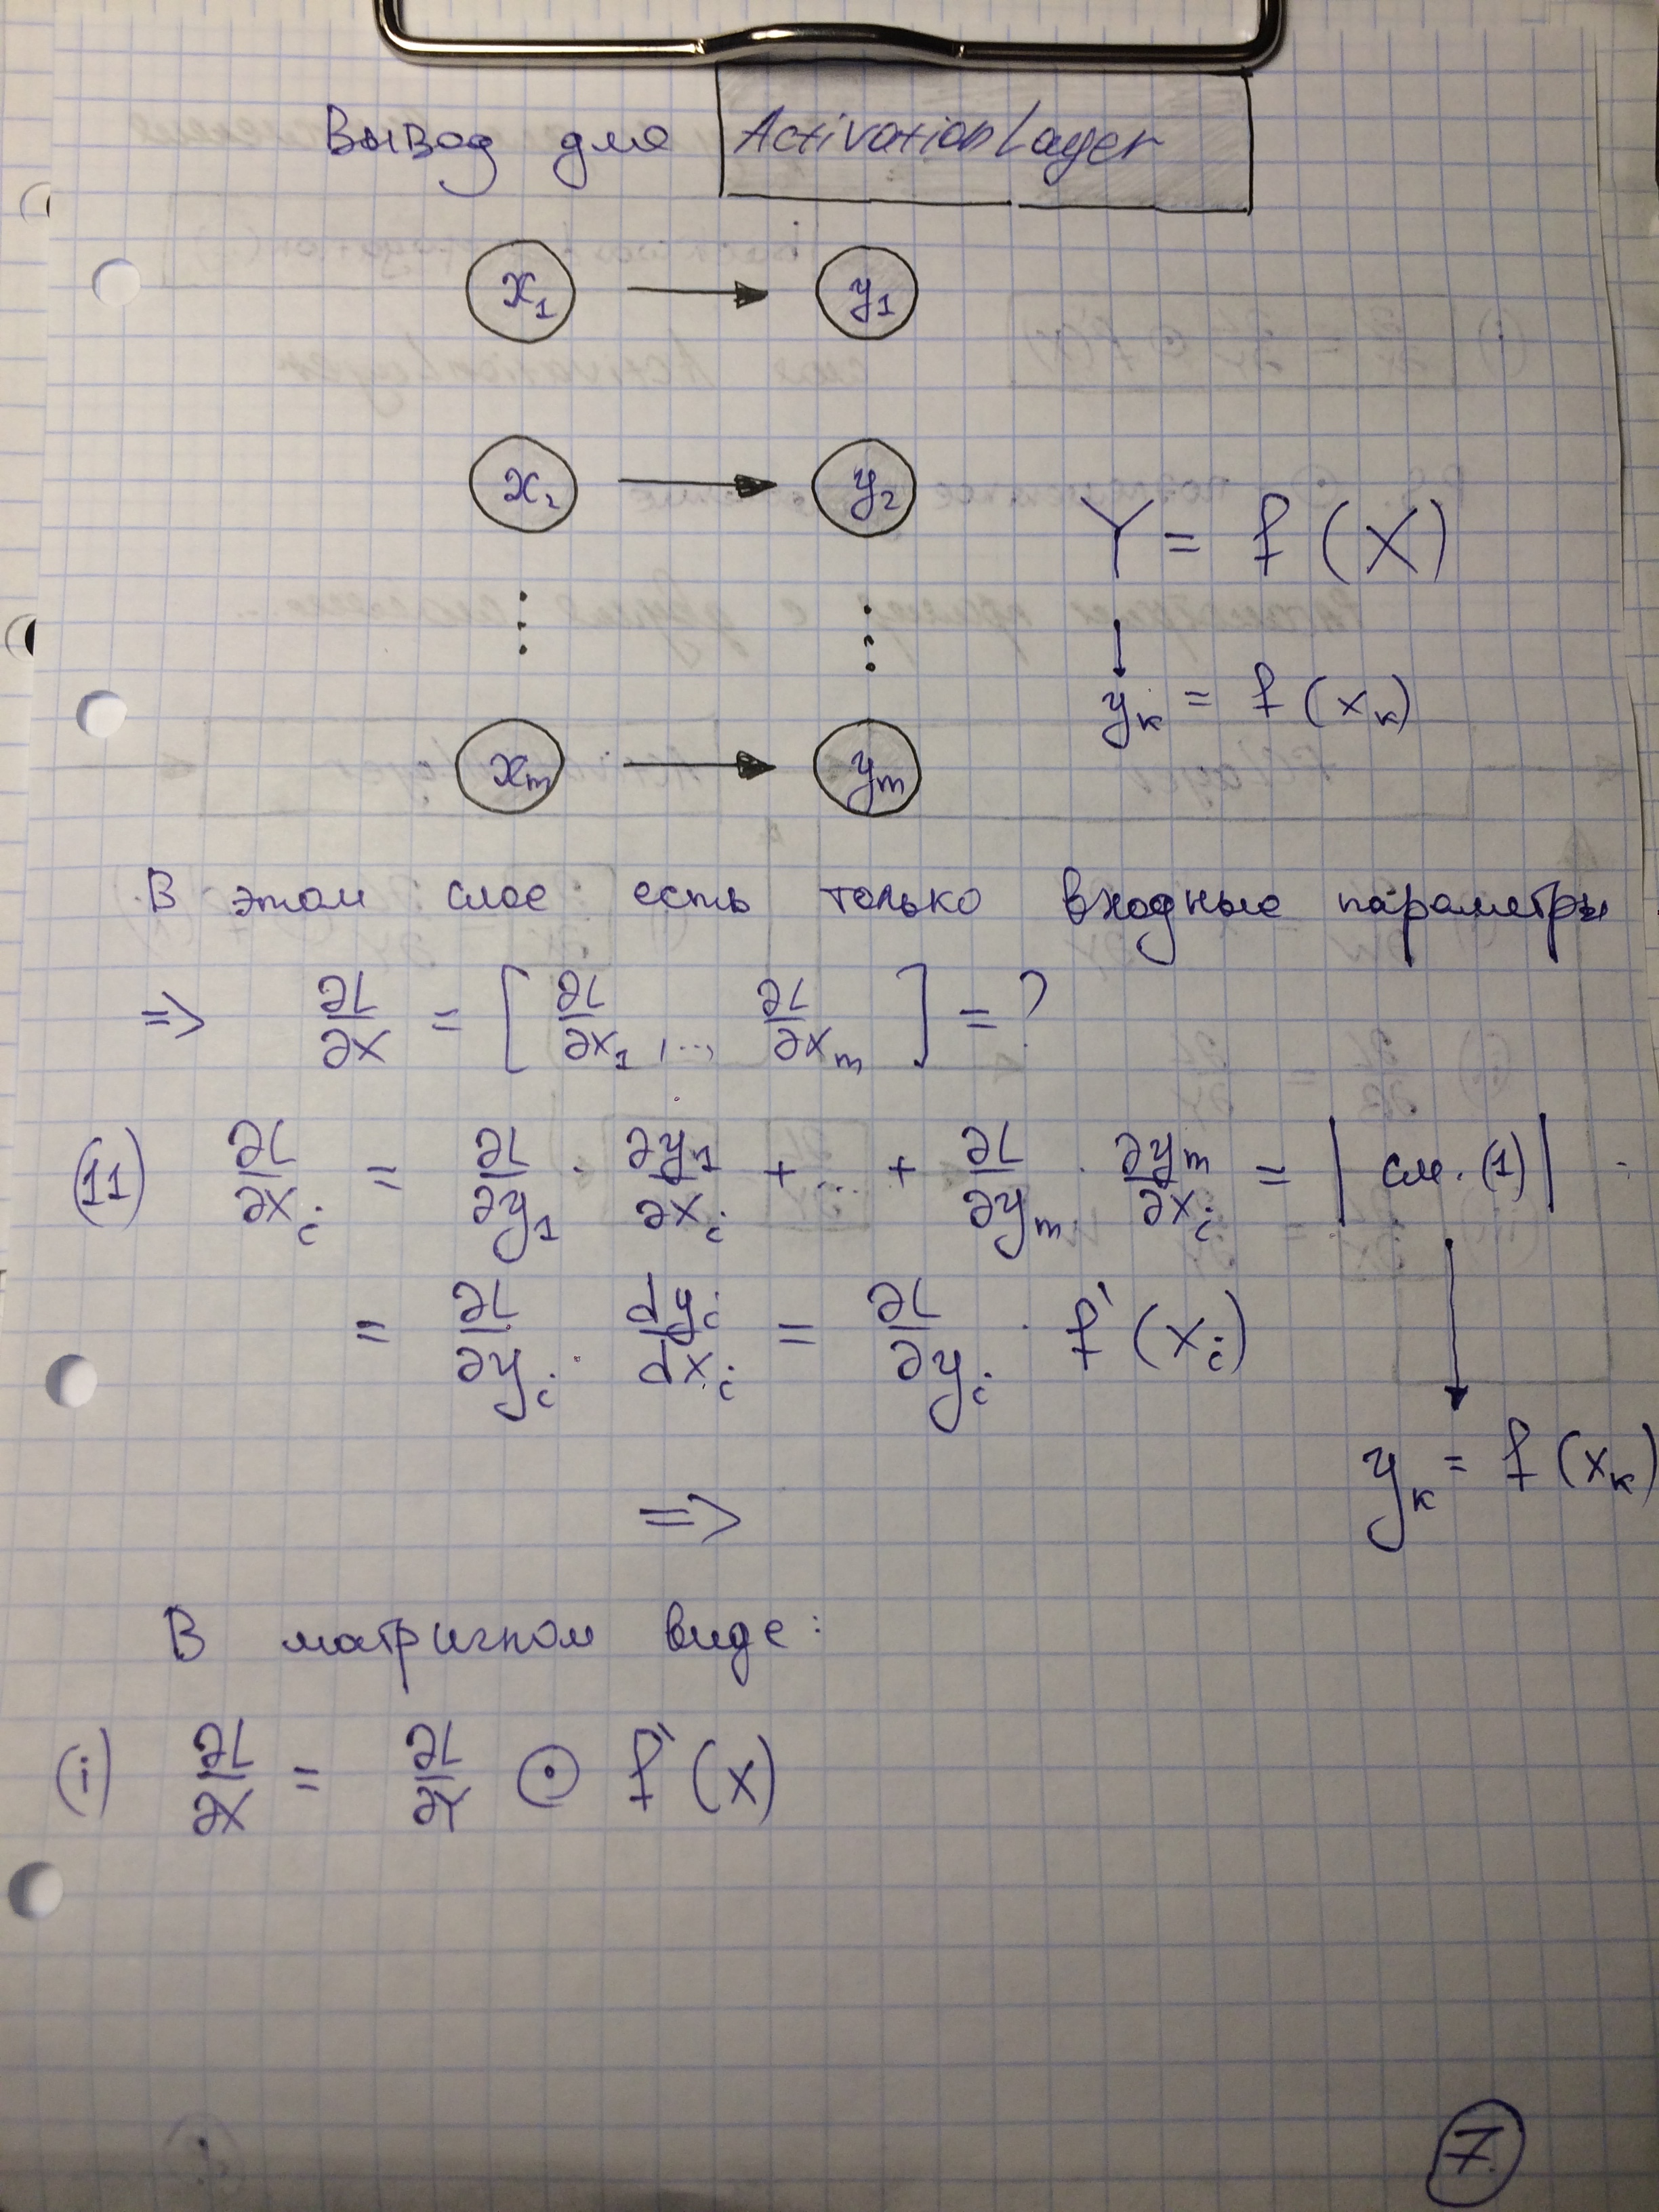 Вывод для ActivationLayer
x₁ → y₁
x₂ → y₂
Y = f (X)
⋮ ⋮
↓
yₖ = f (xₖ)
xₘ → yₘ
В этом слое есть только входные параметры
=> ∂L/∂X = [ ∂L/∂x₁ , ... , ∂L/∂xₘ ] = ?
(11) ∂L/∂xᵢ = ∂L/∂y₁ · ∂y₁/∂xᵢ + ... + ∂L/∂yₘ · ∂yₘ/∂xᵢ = | см. (1) |
= ∂L/∂yᵢ · dyᵢ/dxᵢ = ∂L/∂yᵢ · f'(xᵢ)
yₖ = f (xₖ)
=>
В матричном виде:
(i) ∂L/∂X = ∂L/∂Y ⊙ f'(X)
7